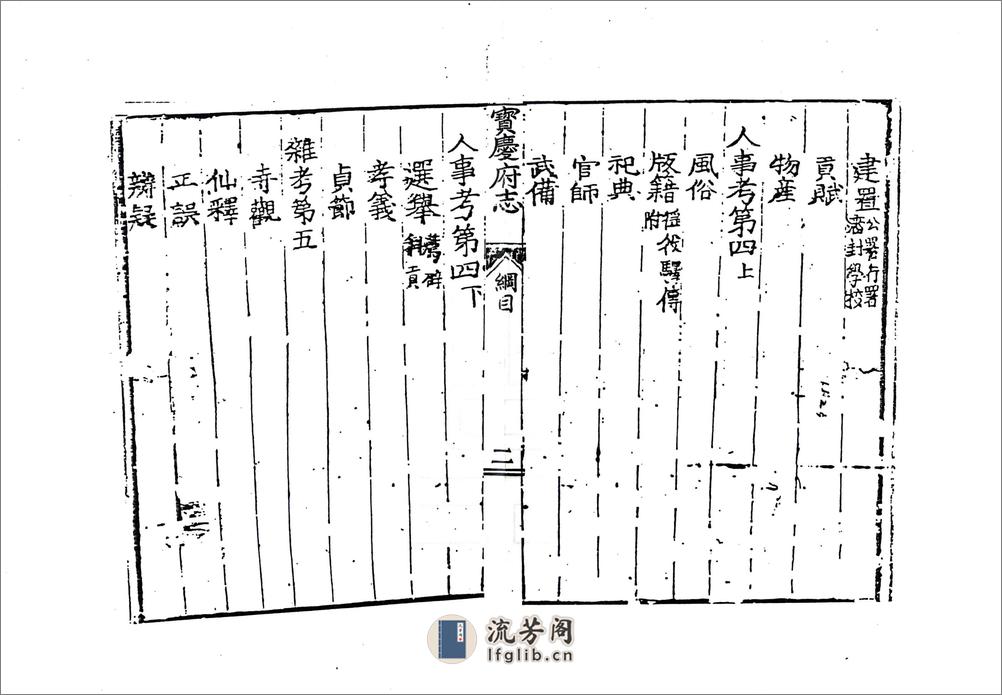 建置公署行署
藩封學校
貢賦
物產
人事考第四上
風俗
版籍徭役驛傳
附
祀典
官師
武備
寶慶府志
綱目
二
人事考第四下
選舉薦辟
科貢
孝義
貞節
雜考第五
寺觀
仙釋
正誤
辯疑
流芳阁
lfglib.cn